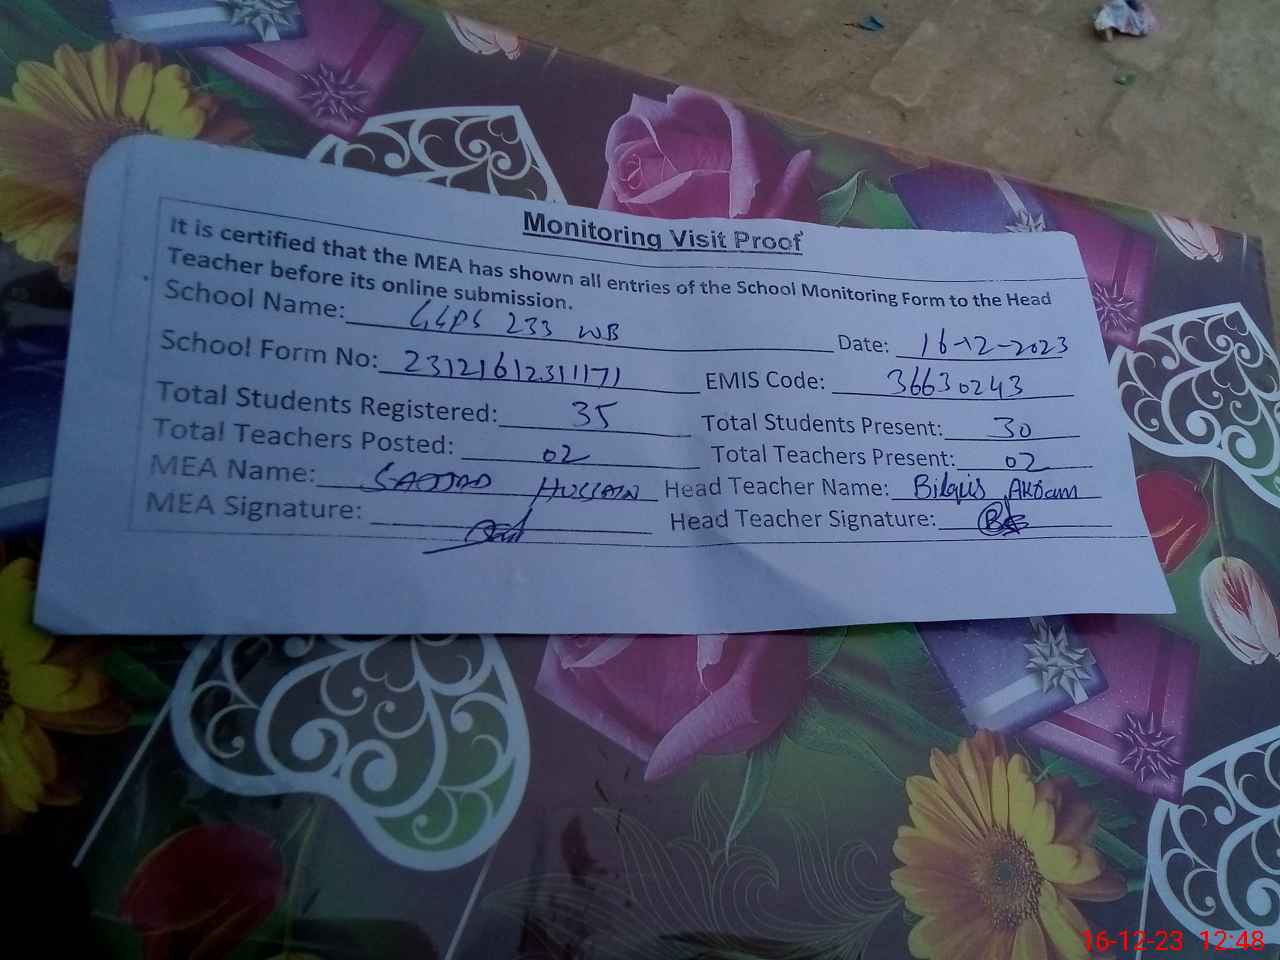 Monitoring Visit Proof
It is certified that the MEA has shown all entries of the School Monitoring Form to the Head
Teacher before its online submission.
School Name: GGPS 233 WB Date: 16-12-2023
School Form No: 23121612311171 EMIS Code: 36630243
Total Students Registered: 35 Total Students Present: 30
Total Teachers Posted: 02 Total Teachers Present: 02
MEA Name: HUSSAIN Head Teacher Name: Bilqis Akram
MEA Signature: Head Teacher Signature:
16-12-23 12:48